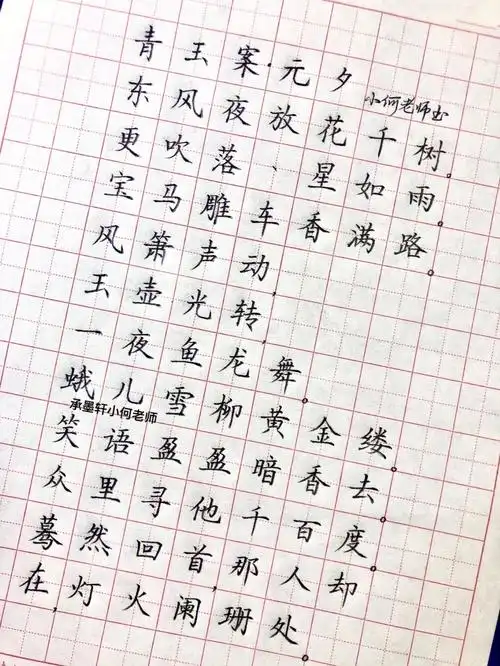 青玉案·元夕
小何老师书
东风夜放花千树。
更吹落、星如雨。
宝马雕车香满路。
风箫声动,
玉壶光转,
一夜鱼龙舞。
蛾儿雪柳黄金缕。
承墨轩小何老师
笑语盈盈暗香去。
众里寻他千百度。
蓦然回首,那人却
在,灯火阑珊处。